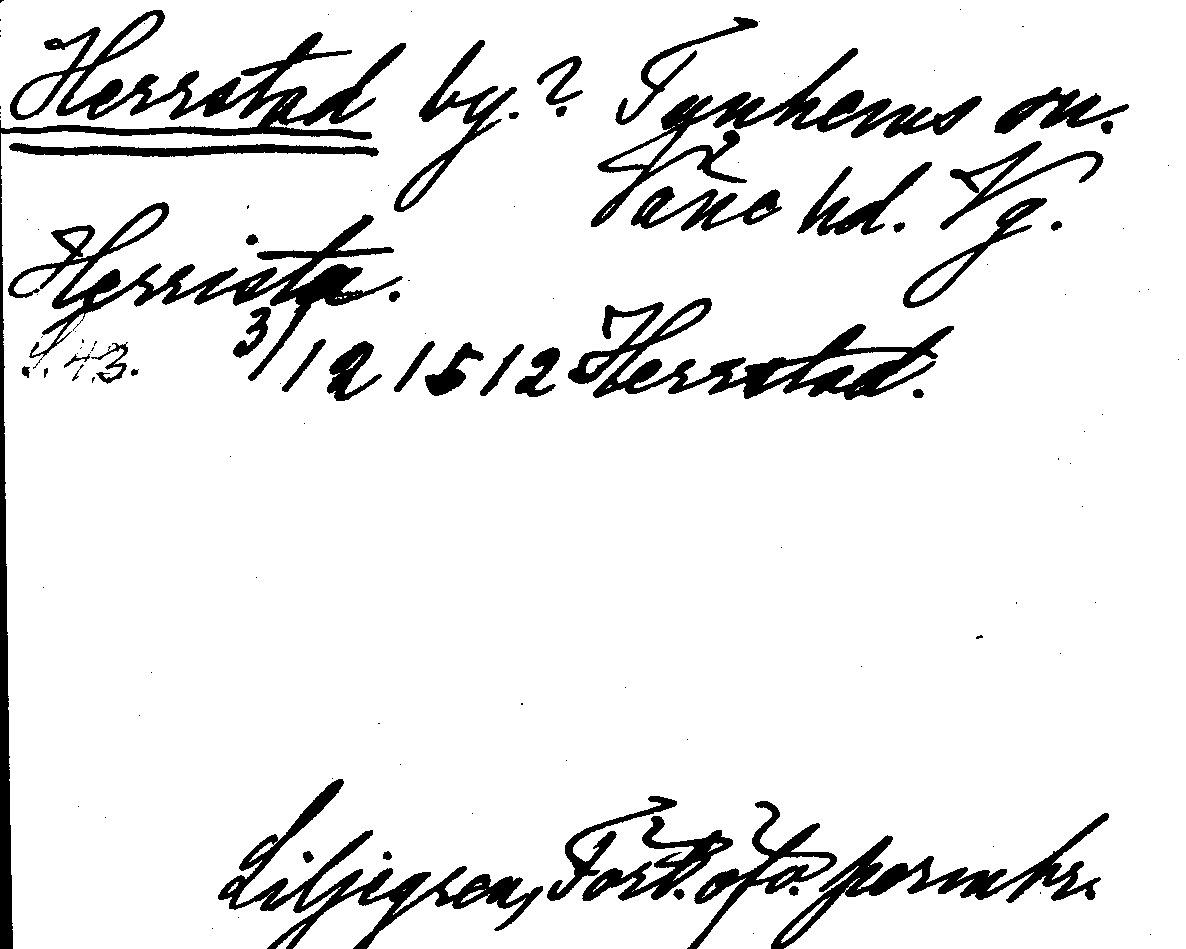 Herrstad by.? Tunhems sn.
Väne hd. Vg.
Herrista.
S. 43. 3/12 1512 Herrstad.
Liljegren, Fört. öfv. permbr.